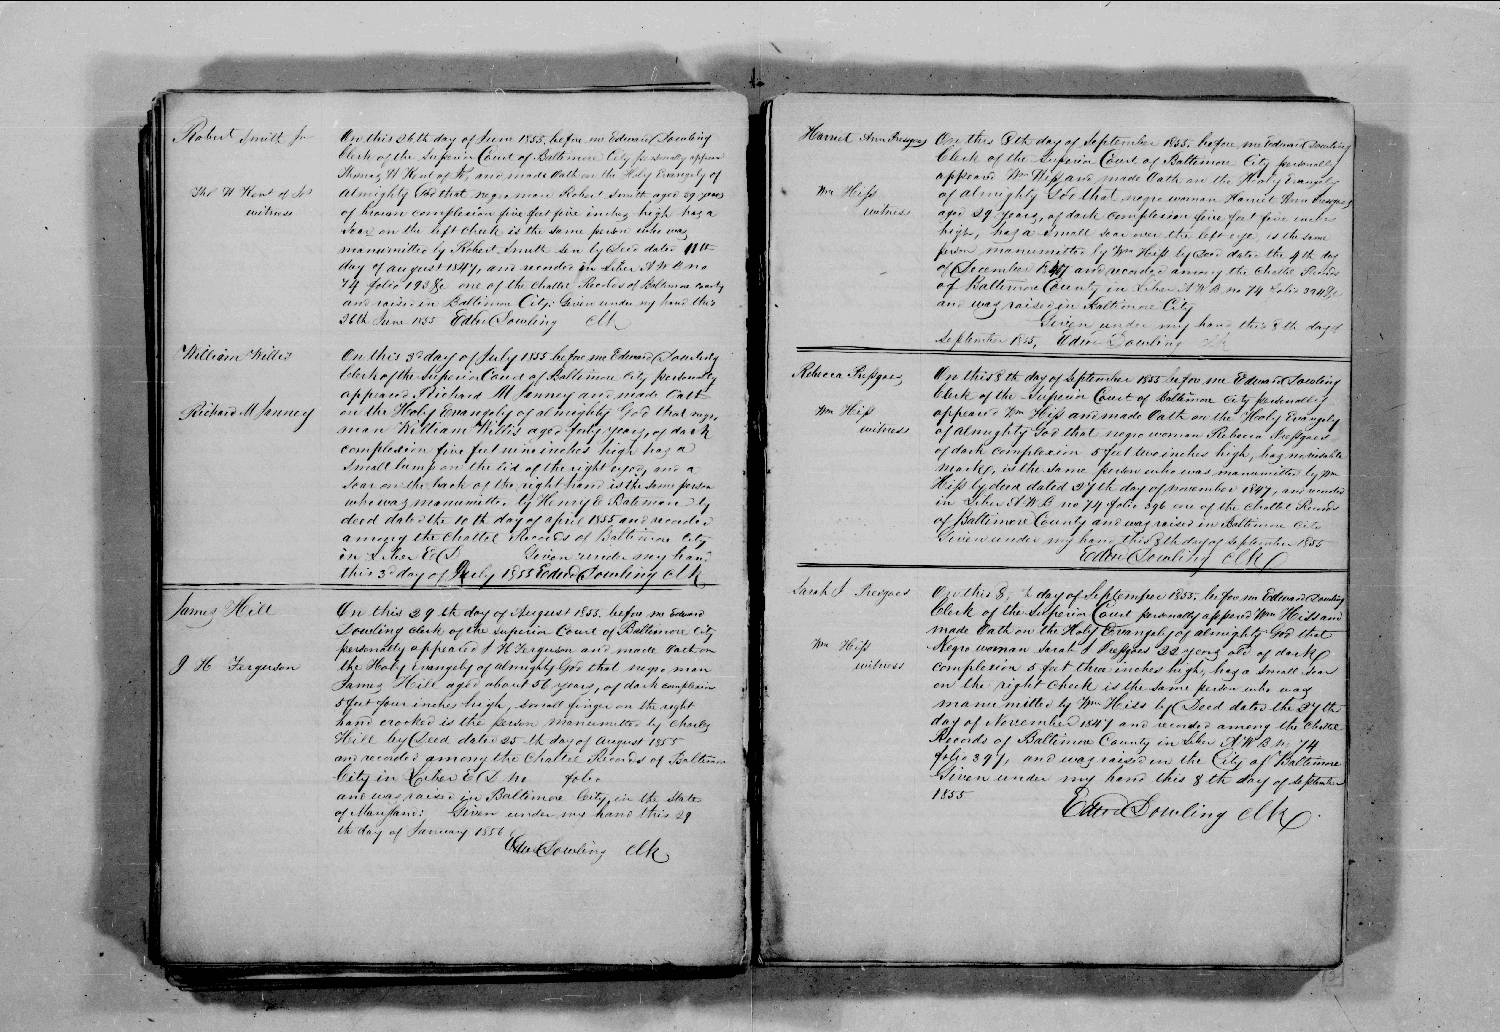 Robert Smith Jr
Thos W Kent of Jos
witness
On this 26th day of June 1855, before me Edward Dowling
Clerk of the Superior Court of Baltimore City personally appeared
Thomas W Kent of and made Oath on the Holy Evangely of
almighty God that negro man Robert Smith aged 29 years
of brown complexion five feet five inches high has a
Scar on the left cheek is the same person who was
manumitted by Robert Smith Sen by Deed dated 11th
day of august 1847, and recorded in Liber A W B no
74 folio 193 &c one of the Chattel Records of Baltimore County
and raised in Baltimore City: Given under my hand this
26th June 1855 Edwd Dowling Clk
William Willis
Richard M Janney
On this 3d day of July 1855 before me Edward Dowling
Clerk of the Superior Court of Baltimore City personally
appeared Richard M Janney and made Oath
on the Holy Evangely of almighty God that negro
man William Willis aged forty years, of dark
complexion five feet nine inches high has a
Small lump on the lid of the right eye, and a
Scar on the back of the right hand is the same person
who was manumitted by Henry E Bateman by
deed dated the 10th day of april 1855 and recorded
among the Chattel Records of Baltimore City
in Liber E D Given under my hand
this 3d day of July 1855 Edwd Dowling Clk
James Hill
J H Ferguson
On this 29th day of August 1855. before me Edward
Dowling clerk of the Superior Court of Baltimore City
personally appeared J H Ferguson and made Oath on
the Holy evangely of almighty God that negro man
James Hill aged about 56 years, of dark complexion
5 feet four inches high, small finger on the right
hand crooked is the person manumitted by Charles
Hill by Deed dated 25th day of August 1855
and recorded among the Chattel Records of Baltimore
City in Liber E D no folio
and was raised in Baltimore City, in the State
of Maryland: Given under my hand this 29
th day of January 1856
Edwd Dowling Clk
Harriet Ann Presgoes
Wm Hiss
witness
On this 8th day of September 1855. before me Edward Dowling
Clerk of the Superior Court of Baltimore City personally
appeared Wm Hiss and made Oath on the Holy Evangely
of almighty God that negro woman Harriet Ann Presgoes
aged 29 years, of dark complexion five feet five inches
high, has a small scar over the left eye is the same
person manumitted by Wm Hiss by Deed dated the 4th day
of December 1847 and recorded among the Chattel Records
of Baltimore County in Liber A W B no 74 folio 394 &c
and was raised in Baltimore City
Given under my hand this 8th day of
September 1855, Edwd Dowling Clk
Rebecca Presgoes
Wm Hiss
witness
On this 8th day of September 1855 before me Edward Dowling
Clerk of the Superior Court of Baltimore City personally
appeared Wm Hiss and made Oath on the Holy Evangely
of almighty God that negro woman Rebecca Presgoes
of dark complexion 5 feet two inches high, has no visible
marks, is the same person who was manumitted by Wm
Hiss by deed dated 27th day of november 1847, and recorded
in Liber A W B no 74 folio 396 one of the Chattel Records
of Baltimore County and was raised in Baltimore City
Given under my hand this 8th day of September 1855
Edwd Dowling Clk
Sarah J Presgoes
Wm Hiss
witness
On this 8th day of September 1855. before me Edward Dowling
Clerk of the Superior Court personally appeared Wm Hiss and
made Oath on the Holy Evangely of almighty God that
Negro woman Sarah J Presgoes 22 years old of dark
complexion 5 feet three inches high, has a small scar
on the right cheek is the same person who was
manumitted by Wm Hiss by Deed dated the 27th
day of November 1847 and recorded among the Chattel
Records of Baltimore County in Liber A W B no 74
folio 397, and was raised in the City of Baltimore
Given under my hand this 8th day of September
1855
Edwd Dowling Clk